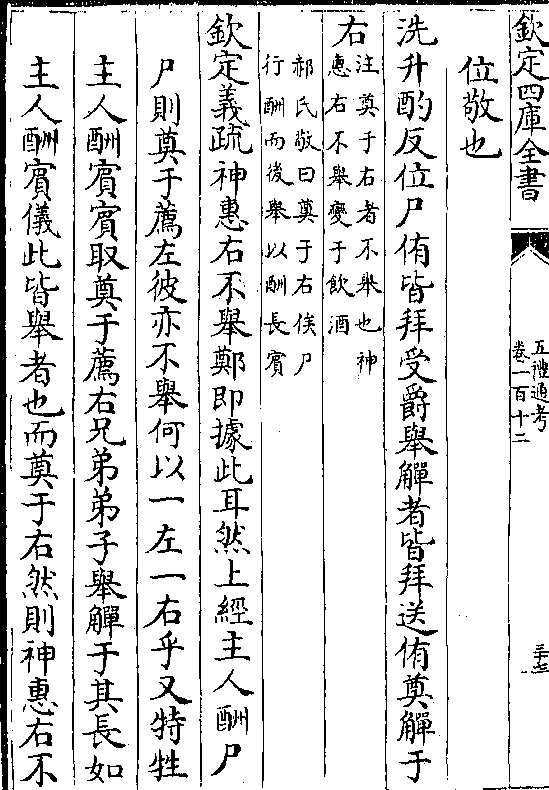 欽定四庫全書
五禮通考
卷一百十二
三十七
位敬也
洗升酌反位尸侑皆拜受爵舉觶者皆拜送侑奠觶于
右
注奠于右者不舉也神
惠右不舉變于飲酒
郝氏敬曰奠于右俟尸
行酬而後舉以酬長賓
欽定義疏神惠右不舉鄭即據此耳然上經主人酬尸
尸則奠于薦左彼亦不舉何以一左一右乎又特牲
主人酬賓賓取奠于薦右兄弟弟子舉觶于其長如
主人酬賓儀此皆舉者也而奠于右然則神惠右不